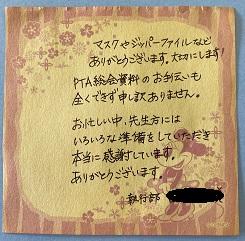 マスクやジッパーファイルなど
ありがとうございます。大切にします!
PTA総会資料のお手伝いも
全くできず申し訳ありません。
お忙しい中、先生方には
いろいろな準備をしていただき
本当に感謝しています。
ありがとうございます。
執行部